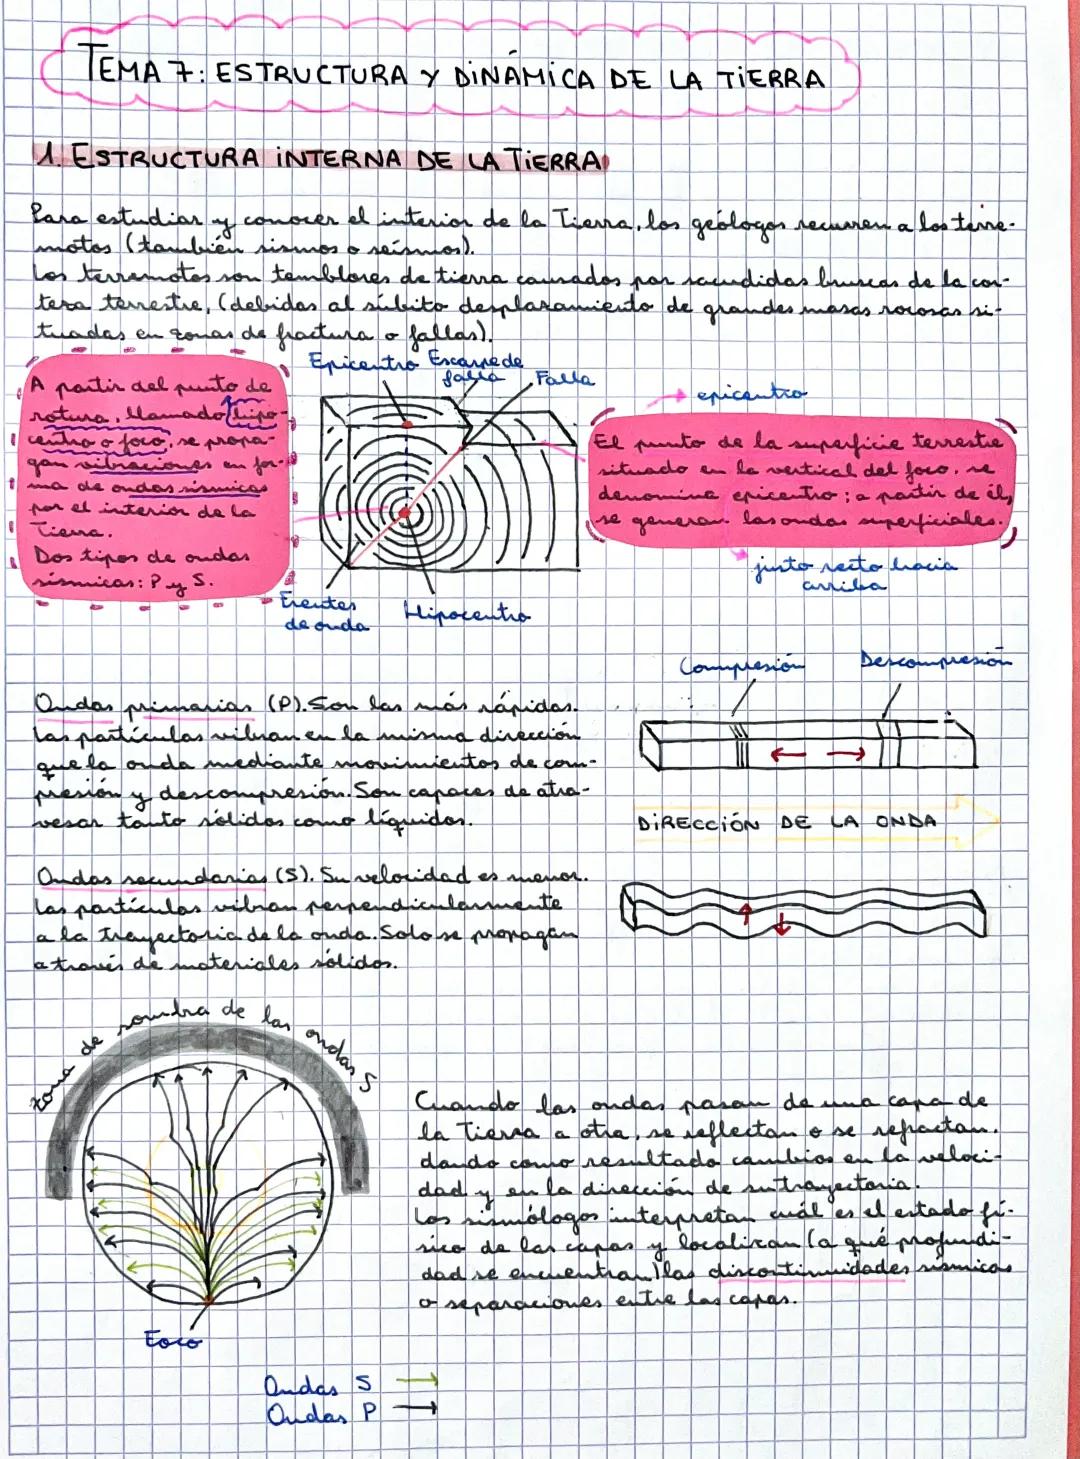 TEMA 7: ESTRUCTURA Y DINÁMICA DE LA TIERRA
1. ESTRUCTURA INTERNA DE LA TIERRA
Para estudiar y conocer el interior de la Tierra, los geólogos recurren a los terre-
motos (también sismos o seísmos).
Los terremotos son temblores de tierra causados por sacudidas bruscas de la cor-
teza terrestre, (debidas al súbito desplazamiento de grandes masas rocosas si-
tuadas en zonas de fractura o fallas).
A partir del punto de
rotura, llamado hipo-
centro o foco, se propa-
gan vibraciones en for-
ma de ondas sísmicas
por el interior de la
Tierra.
Dos tipos de ondas
sísmicas: P y S.
Epicentro
Escarpe de
falla
Falla
Frentes
de onda
Hipocentro
epicentro
El punto de la superficie terrestre
situado en la vertical del foco, se
denomina epicentro; a partir de él,
se generan las ondas superficiales.
justo recto hacia
arriba
Ondas primarias (P). Son las más rápidas.
Las partículas vibran en la misma dirección
que la onda mediante movimientos de com-
presión y descompresión. Son capaces de atra-
vesar tanto sólidos como líquidos.
Compresión
Descompresión
DIRECCIÓN DE LA ONDA
Ondas secundarias (S). Su velocidad es menor.
Las partículas vibran perpendicularmente
a la trayectoria de la onda. Solo se propagan
a través de materiales sólidos.
zona de sombra de las ondas S
Foco
Cuando las ondas pasan de una capa de
la Tierra a otra, se reflectan o se refractan.
dando como resultado cambios en la veloci-
dad y en la dirección de su trayectoria.
Los sismólogos interpretan cuál es el estado fí-
sico de las capas y localizan (a qué profundi-
dad se encuentran) las discontinuidades sísmicas
o separaciones entre las capas.
Ondas S
Ondas P